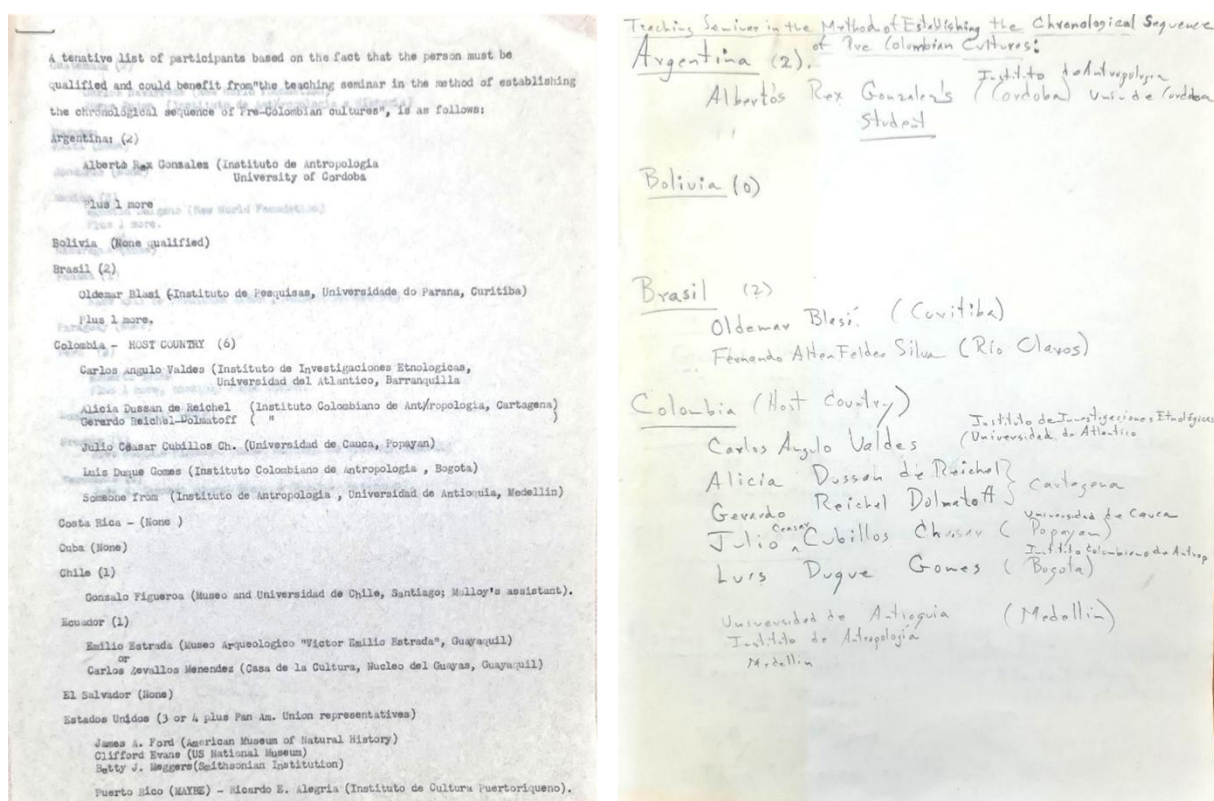 A tenative list of participants based on the fact that the person must be
qualified and could benefit from"the teaching seminar in the method of establishing
the chronological sequence of Pre-Colombian cultures", is as follows:
Argentina: (2)
Alberto Rex Gonzalez (Instituto de Antropologia
University of Cordoba
Plus 1 more
Bolivia (None qualified)
Brasil (2)
Oldemar Blasi (Instituto de Pesquisas, Universidade do Parana, Curitiba)
Plus 1 more.
Colombia - HOST COUNTRY (6)
Carlos Angulo Valdes (Instituto de Investigaciones Etnologicas,
Universidad del Atlantico, Barranquilla
Alicia Dussan de Reichel (Instituto Colombiano de Antropologia, Cartagena)
Gerardo Reichel-Dolmatoff ( " )
Julio Ceasar Cubillos Ch. (Universidad de Cauca, Popayan)
Luis Duque Gomes (Instituto Colombiano de Antropologia , Bogota)
Someone from (Instituto de Antropologia , Universidad de Antioquia, Medellin)
Costa Rica - (None )
Cuba (None)
Chile (1)
Gonzalo Figueroa (Museo and Universidad de Chile, Santiago; Mulloy's assistant).
Ecuador (1)
Emilio Estrada (Museo Arqueologico "Victor Emilio Estrada", Guayaquil)
or
Carlos Zevallos Menendez (Casa de la Cultura, Nucleo del Guayas, Guayaquil)
El Salvador (None)
Estados Unidos (3 or 4 plus Pan Am. Union representatives)
James A. Ford (American Museum of Natural History)
Clifford Evans (US National Museum)
Betty J. Meggers(Smithsonian Institution)
Puerto Rico (MAYBE) - Ricardo E. Alegria (Instituto de Cultura Puertoriqueno).
Teaching Seminar in the Method of Establishing the Chronological Sequence
of Pre Colombian Cultures:
Argentina (2).
Instituto de Antropologia
Alberto's Rex Gonzales's (Cordoba) Univ de Cordoba
Student
Bolivia (0)
Brasil (2)
Oldemar Blasi. (Curitiba)
Fernando Altenfelder Silva (Rio Claros)
Colombia (Host Country)
Instituto de Investigaciones Etnológicas
Carlos Angulo Valdes (Universidad de Atlantico
Alicia Dussan de Reichel } Cartagena
Gerardo Reichel Dolmatoff
Universidad de Cauca
Julio Ceasar Cubillos (Popayan)
Instituto Colombiano de Antrop
Luis Duque Gomes (Bogota)
Universidad de Antioquia (Medellin)
Instituto de Antropología
Medellin